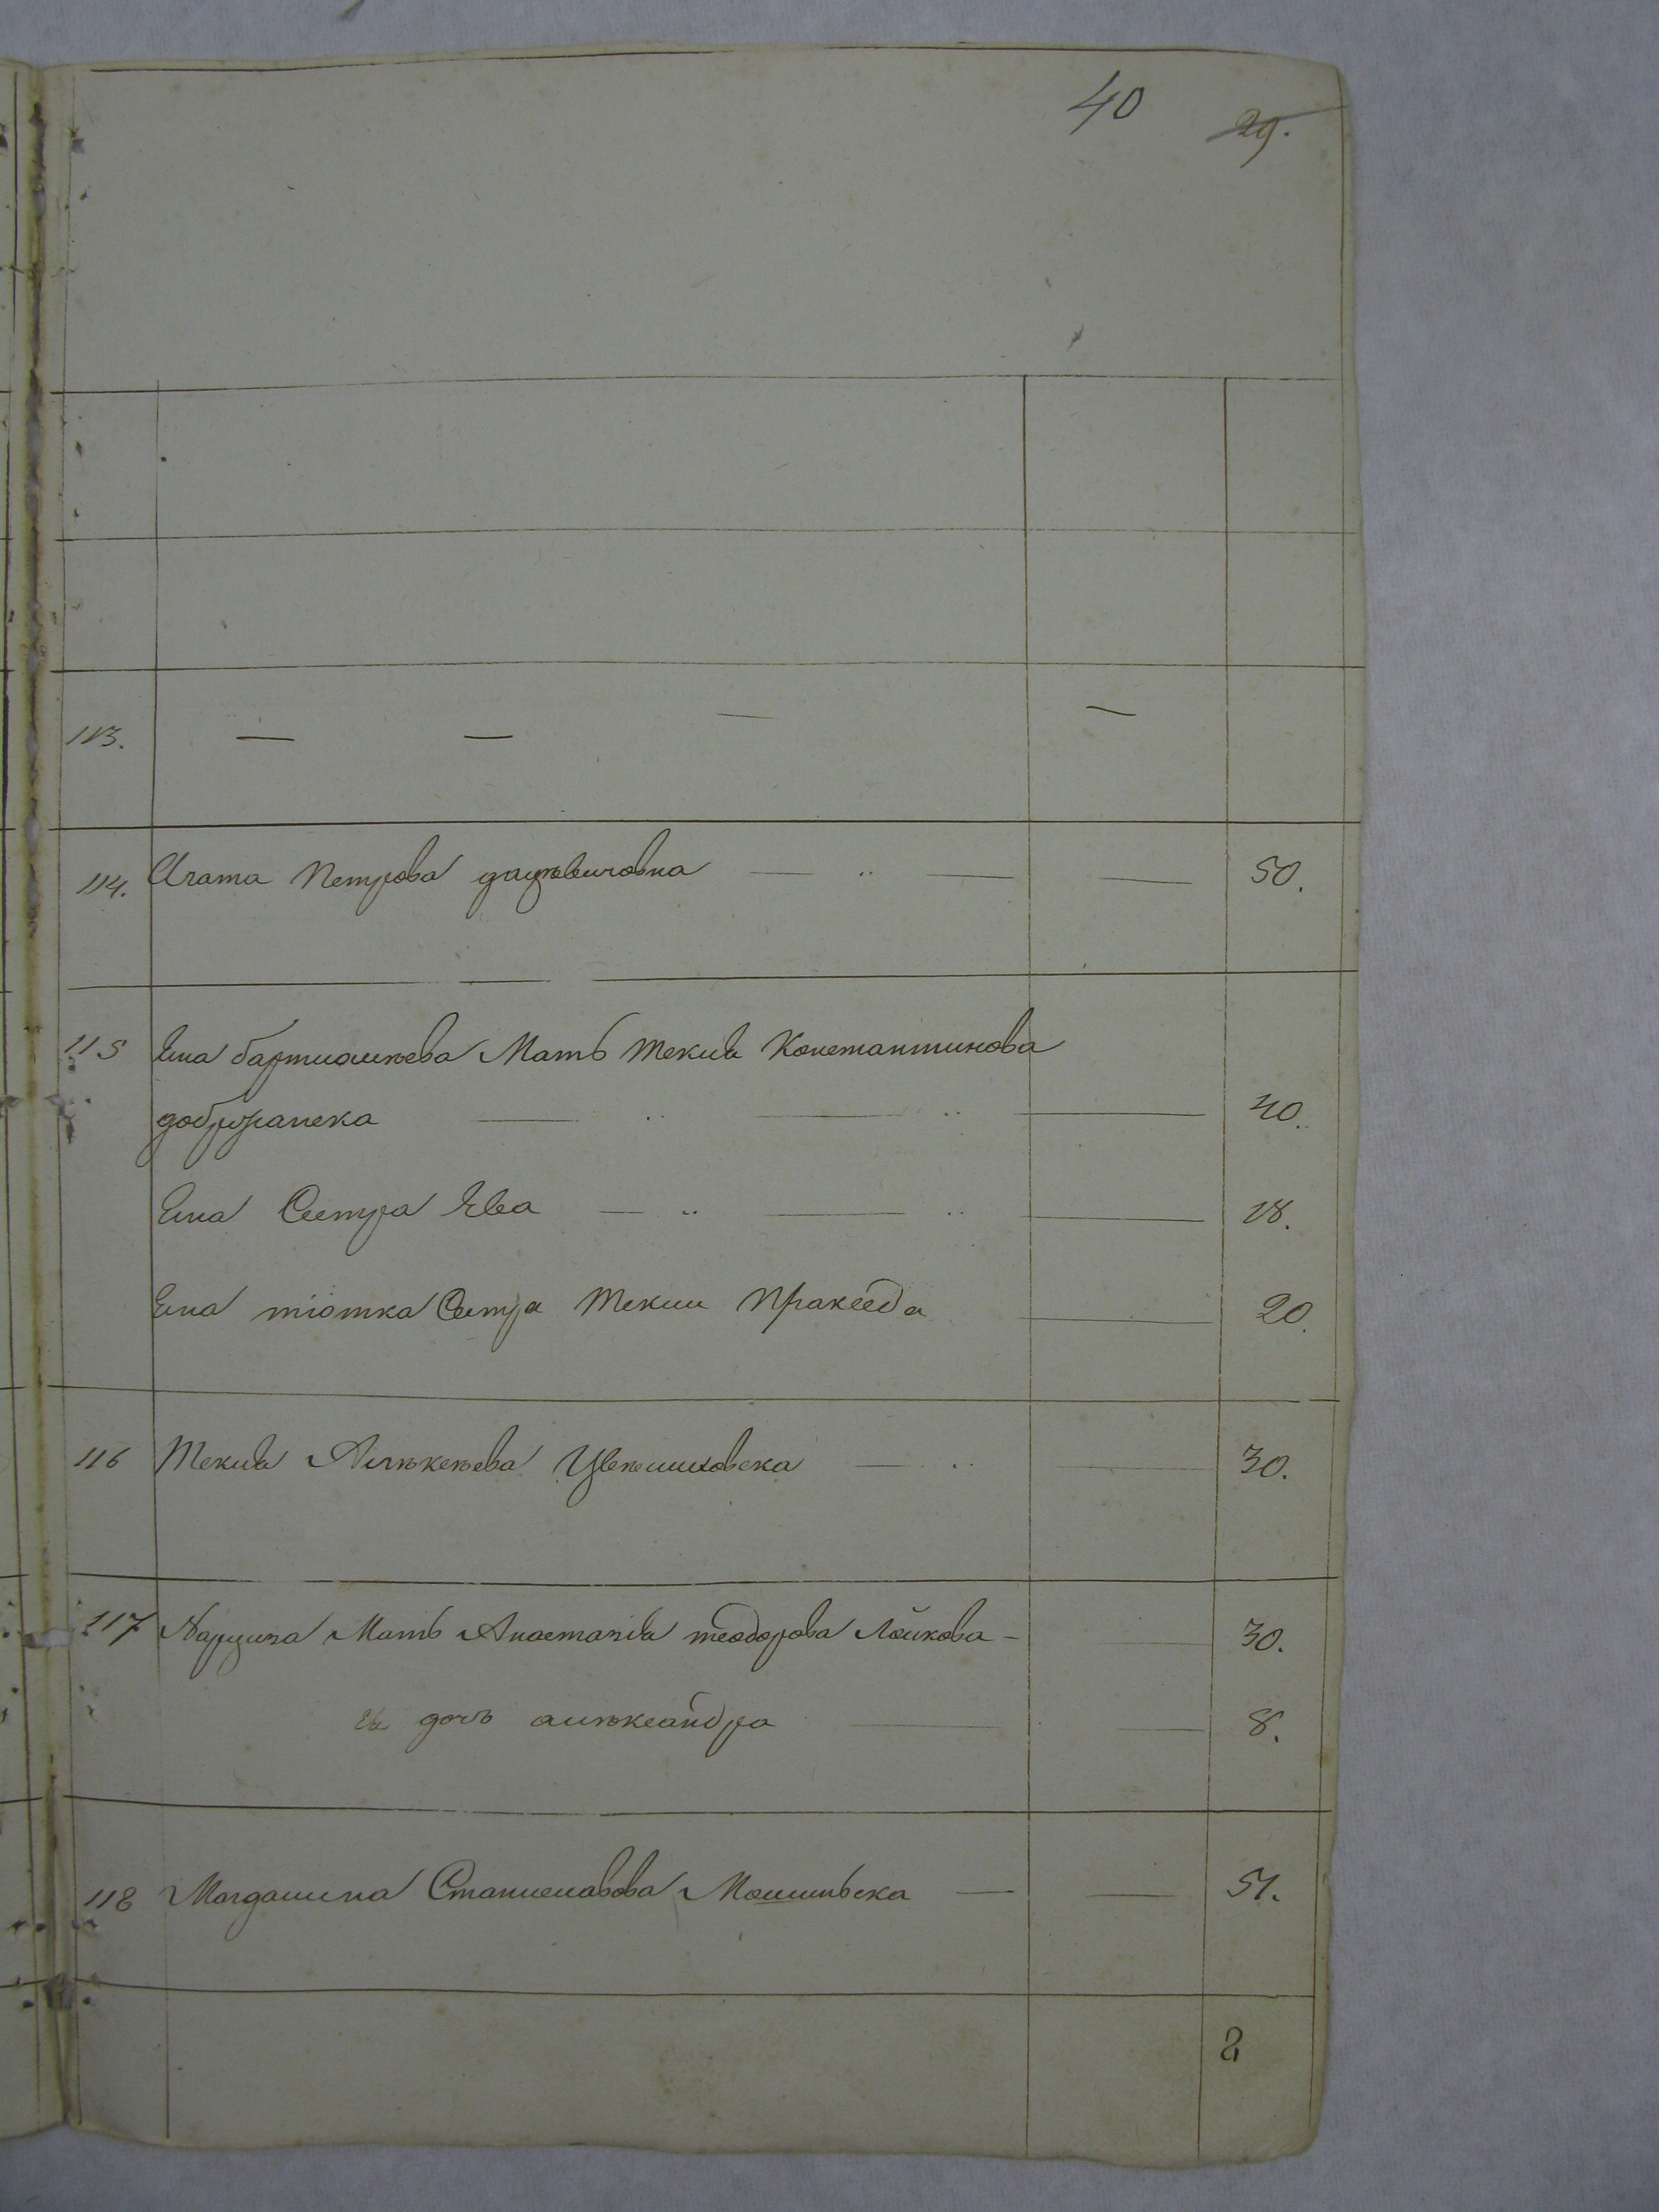 40 29.
113. — — — —
114. Агата Петрова дацевичовна — " — — 50.
115 Ема бартиошнева Мать Текля Константинова
добржанска — " — " — 40.
Ема Сестра Ева — " — " — 18.
Ема тіотка Сестра Текли Праксѣда — 20.
116 Текля Алѣксѣева — " — 30.
117 Нарциза Мать Анастазія теодорова Лойкова — — 30.
Ея дочь алѣксандра — — 8.
118 Магдалина Станиславова — — 51.
8